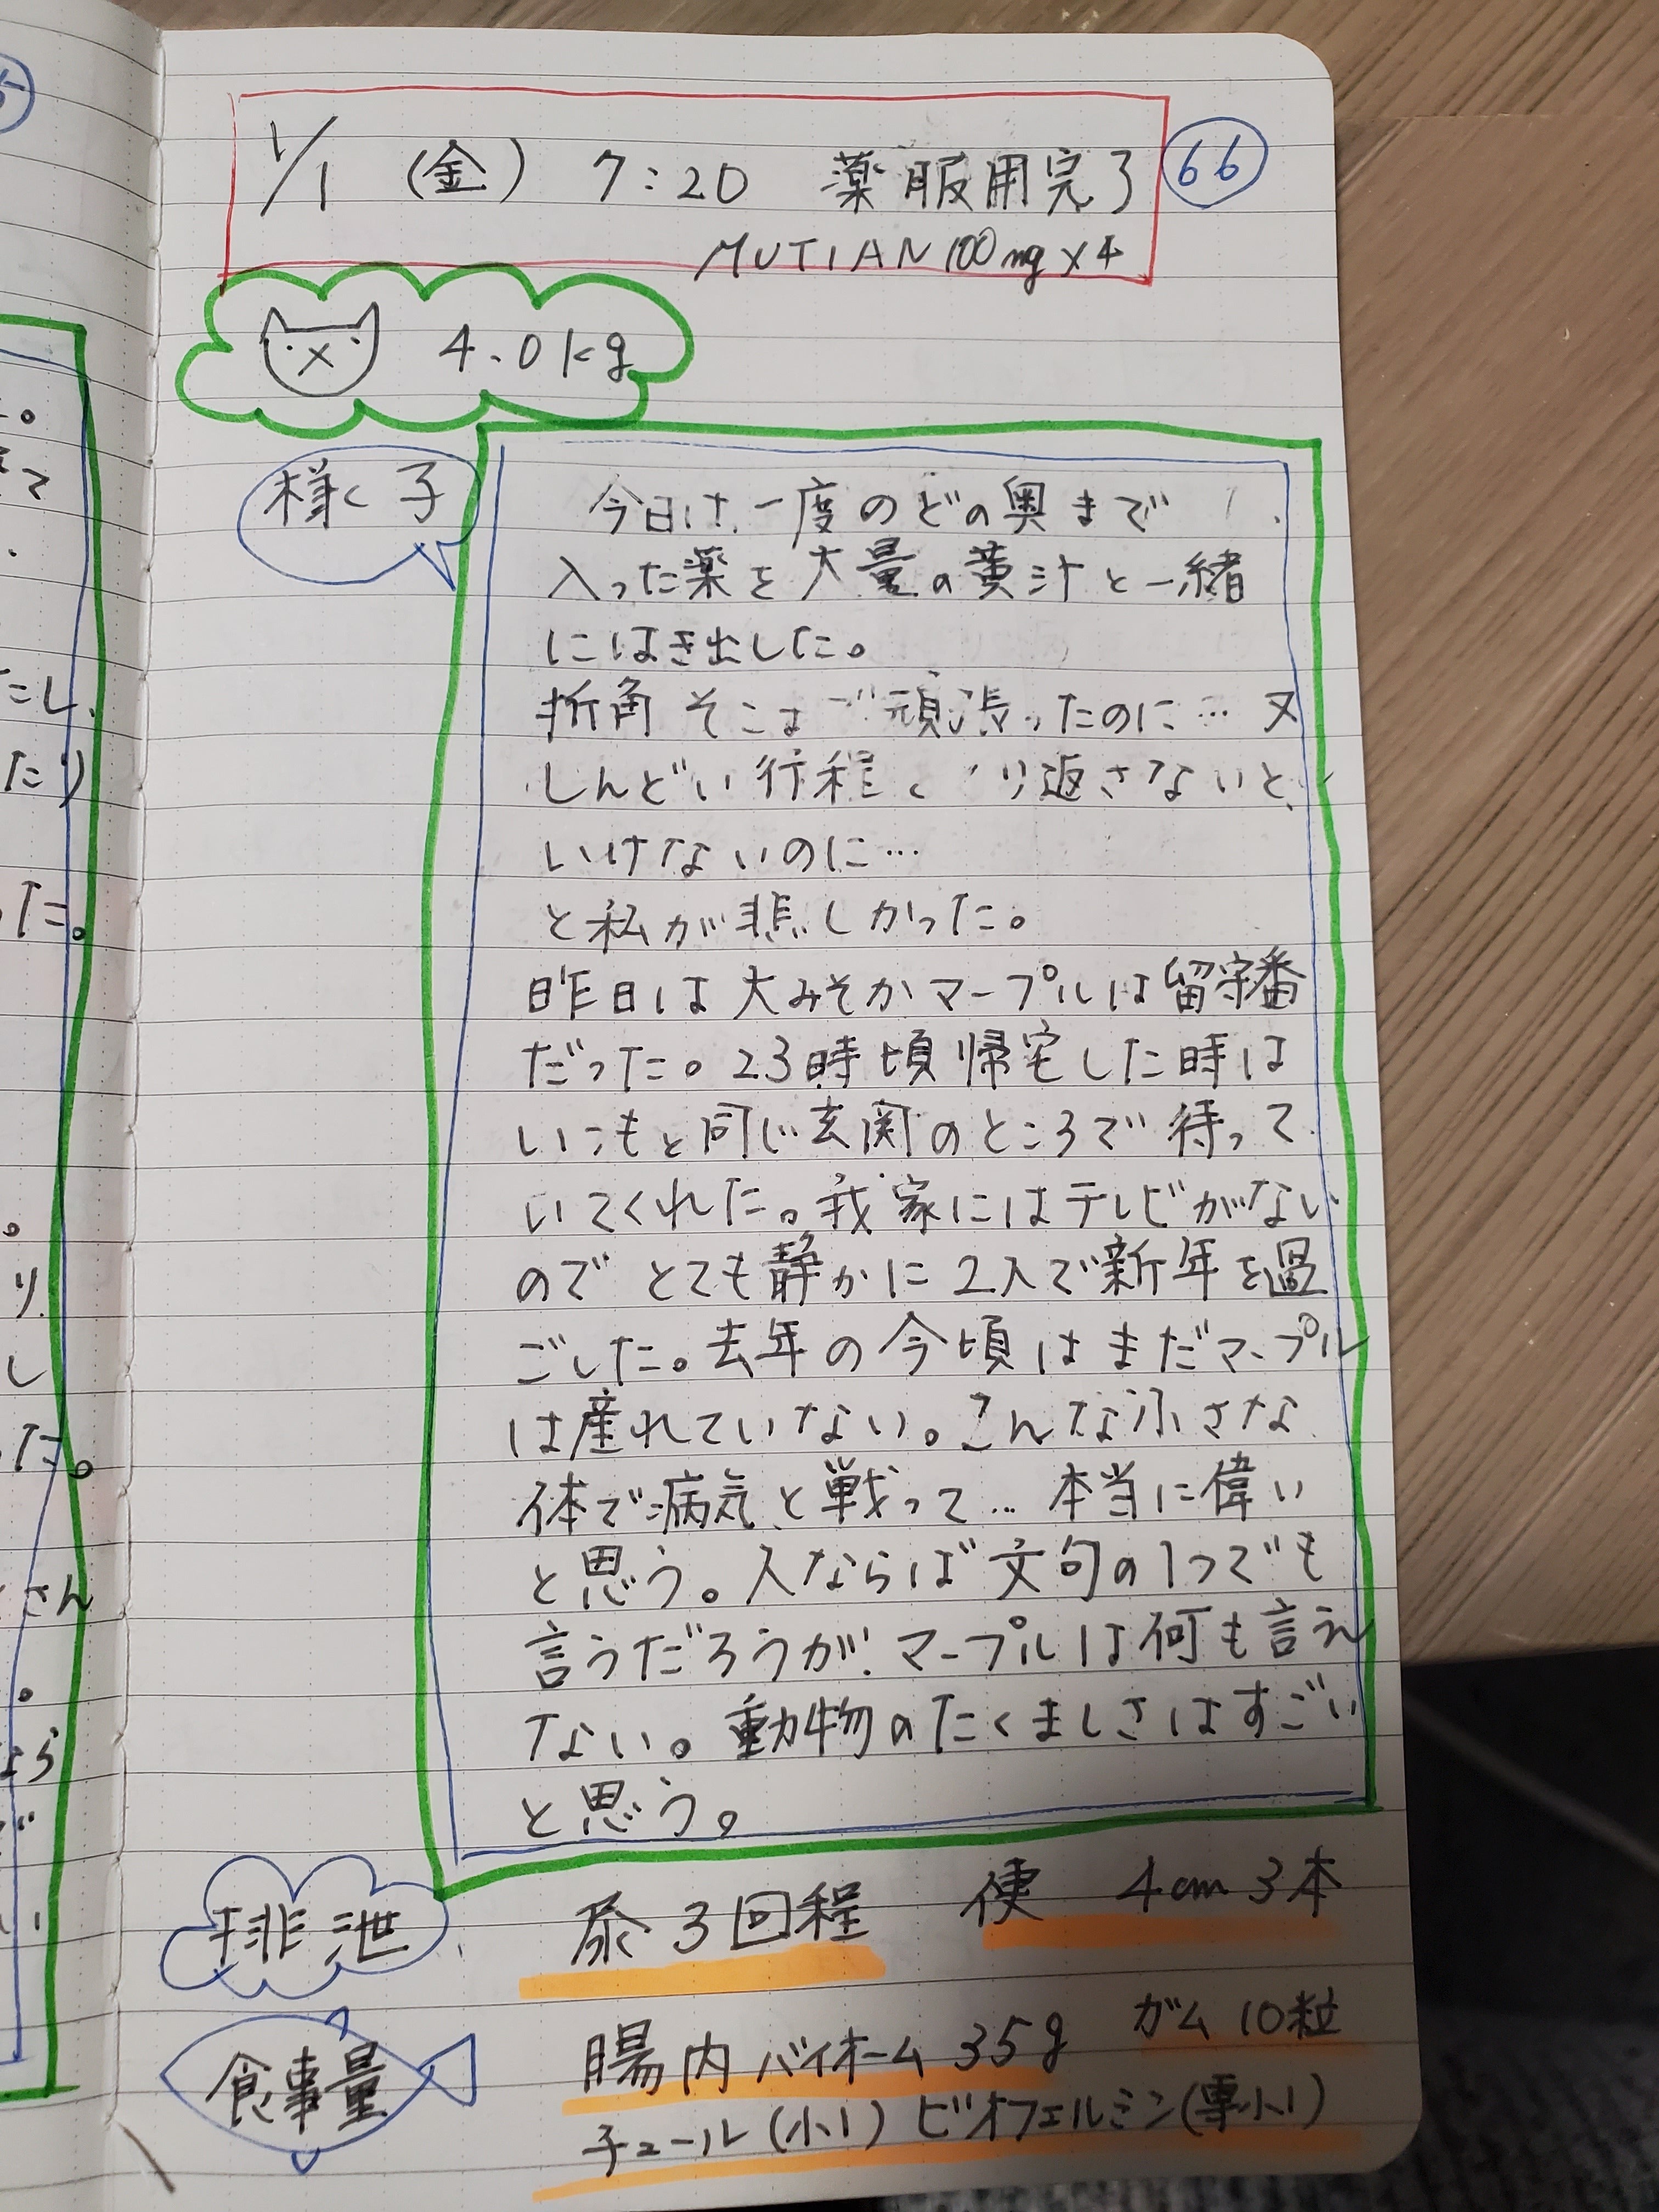 1/1 (金) 7:20 薬服用完了
66
MUTIAN 100mg×4
4.0kg
様子
今日は、一度のどの奥まで
入った薬を大量の黄汁と一緒
にはき出した。
折角そこまで頑張ったのに…又
しんどい行程 り返さないと、
いけないのに…
と私が悲しかった。
昨日は大みそかマープルは留守番
だった。23時頃帰宅した時は
いつもと同じ玄関のところで待って
いてくれた。我家にはテレビがない
のでとても静かに2人で新年を過
ごした。去年の今頃はまだマープル
は産れていない。こんな小さな
体で病気と戦って…本当に偉い
と思う。人ならば文句の1つでも
言うだろうが、マープルは何も言え
ない。動物のたくましさはすごい
と思う。
排泄 尿3回程 便 4cm 3本
食事量 腸内バイオーム 35g ガム 10粒
チュール(小1) ビオフェルミン(小1)